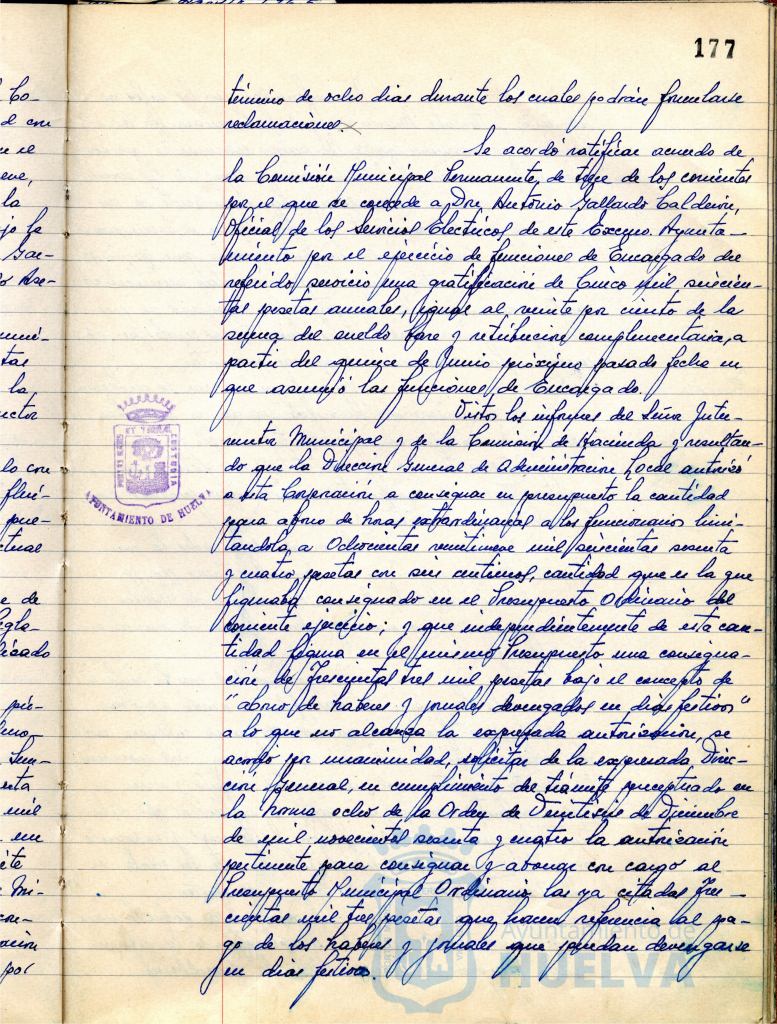 177
término de ocho dias durante los cuales podrán formularse
reclamaciones.
Se acordó ratificar acuerdo de
la Comisión Municipal Permanente, de trece de los corrientes
por el que se concede a Don Antonio Gallardo Calderón,
Oficial de los Servicios Electricos de este Excmo. Ayunta-
miento por el ejercicio de funciones de Encargado del
referido servicio una gratificación de Cinco mil seiscien-
tas pesetas anuales, igual al veinte por ciento de la
suma del sueldo base y retribucion complementaria, a
partir del quince de Junio próximo pasado fecha en
que asumió las funciones de Encargado.
Vistos los informes del Señor Inter-
ventor Municipal y de la Comision de Hacienda y resultan-
do que la Direccion General de Administracion Local autorizó
a esta Corporación a consignar en presupuesto la cantidad
para abono de horas extraordinarias a los funcionarios limi-
tandola, a Ochocientas veintinueve mil seiscientas sesenta
y cuatro pesetas con seis centimos, cantidad que es la que
figuraba consignado en el Presupuesto Ordinario del
corriente ejercicio; y que independientemente de esta can-
tidad figura en el mismo Presupuesto una consigna-
ción de Trescientas tres mil pesetas bajo el concepto de
"abono de haberes y jornales devengados en dias festivos"
a lo que no alcanza la expresada autorización, se
acordó por unanimidad, solicitar de la expresada Direc-
ción General, en cumplimiento del trámite preceptuado en
la Norma ocho de la Orden de Veintiseis de Diciembre
de mil novecientos sesenta y cuatro la autorización
pertinente para consignar y abonar con cargo al
Presupuesto Municipal Ordinario las ya citadas Tres-
cientas mil tres pesetas que hacen referencia al pa-
go de los haberes y jornales que puedan devengarse
en dias festivos.
AYUNTAMIENTO DE HUELVA
Ayuntamiento de
HUELVA